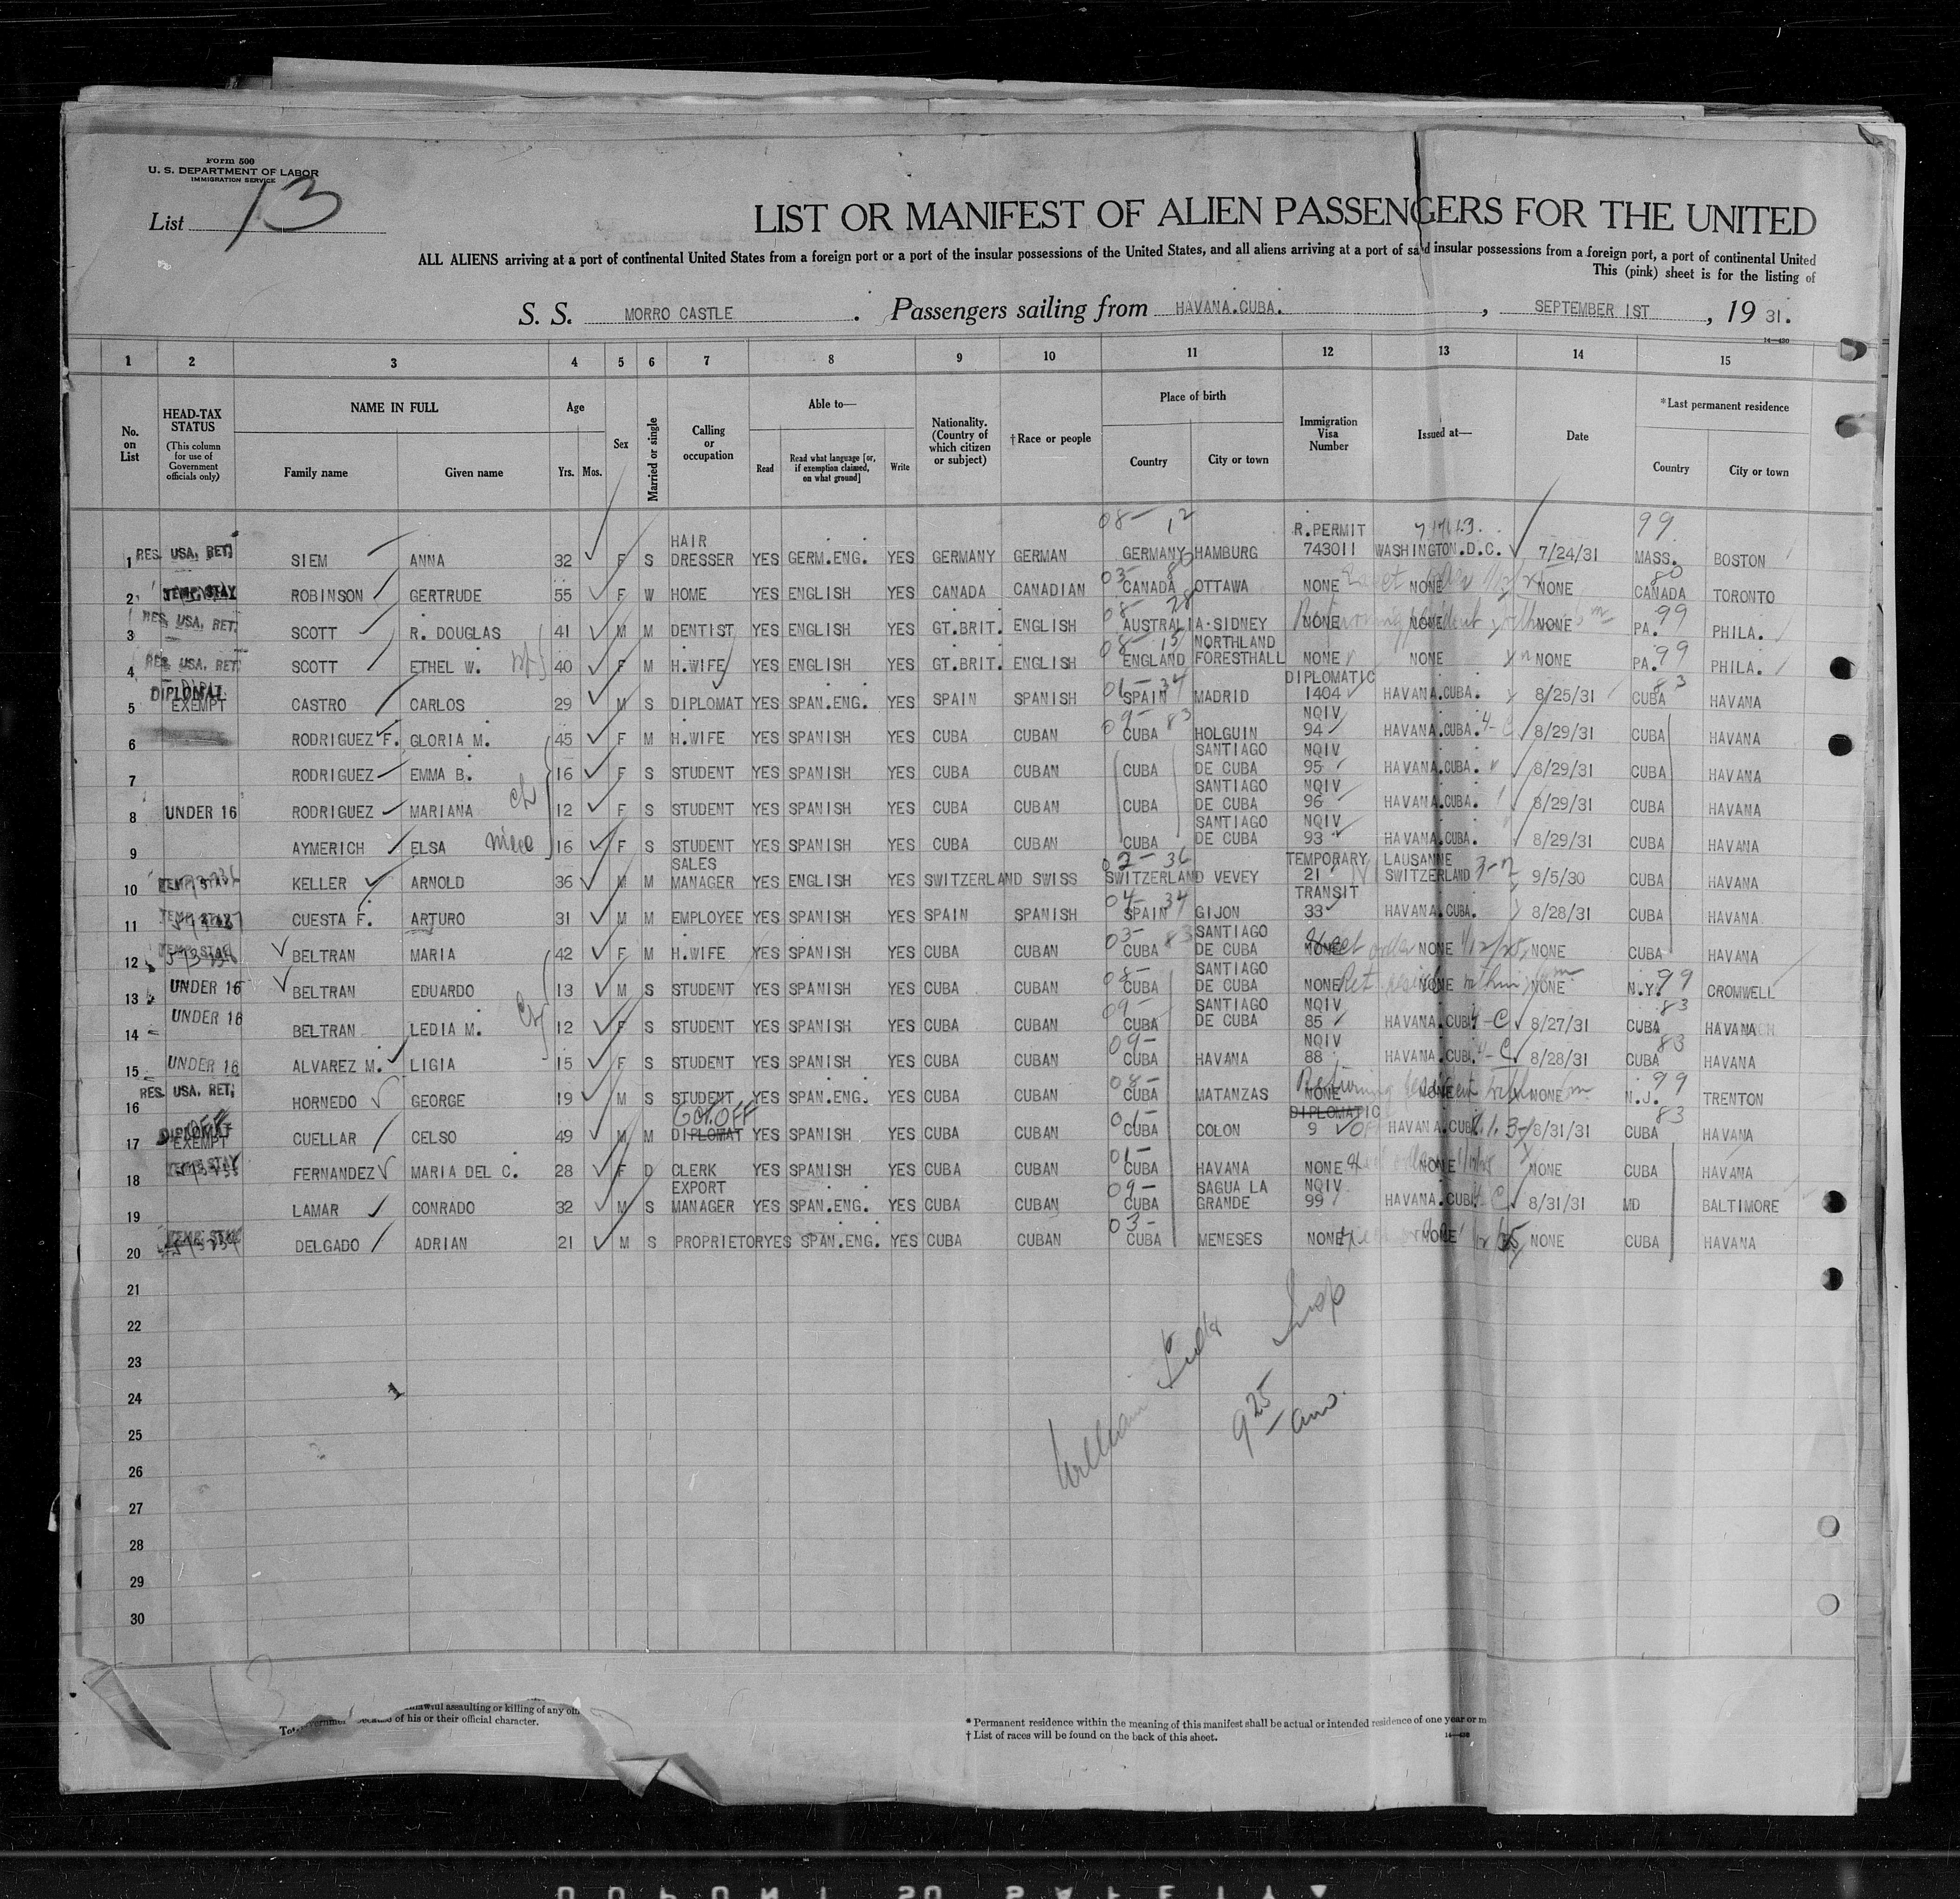 Form 500
U. S. DEPARTMENT OF LABOR
IMMIGRATION SERVICE
List 13
LIST OR MANIFEST OF ALIEN PASSENGERS FOR THE UNITED
ALL ALIENS arriving at a port of continental United States from a foreign port or a port of the insular possessions of the United States, and all aliens arriving at a port of said insular possessions from a foreign port, a port of continental United
This (pink) sheet is for the listing of
S. S. MORRO CASTLE . Passengers sailing from HAVANA.CUBA. , SEPTEMBER 1ST , 19 31.
14—430
1 2 3 4 5 6 7 8 9 10 11 12 13 14 15
No. on List HEAD-TAX STATUS (This column for use of Government officials only) NAME IN FULL Family name Given name Age Yrs. Mos. Sex Married or single Calling or occupation Able to— Read Read what language [or, if exemption claimed, on what ground] Write Nationality. (Country of which citizen or subject) †Race or people Place of birth Country City or town Immigration Visa Number Issued at— Date *Last permanent residence Country City or town
08- 12 99
1 RES. USA. RET. SIEM ANNA 32 F S HAIR DRESSER YES GERM.ENG. YES GERMANY GERMAN GERMANY HAMBURG R.PERMIT 743011 WASHINGTON.D.C. 7/24/31 MASS. BOSTON
03- 80 80
2 TEMP. STAY ROBINSON GERTRUDE 55 F W HOME YES ENGLISH YES CANADA CANADIAN CANADA OTTAWA NONE NONE NONE CANADA TORONTO
08- 28 99
3 RES. USA. RET. SCOTT R. DOUGLAS 41 M M DENTIST YES ENGLISH YES GT.BRIT. ENGLISH AUSTRALIA-SIDNEY NONE NONE NONE PA. PHILA.
08- 15 99
4 RES. USA. RET. SCOTT ETHEL W. wf 40 F M H.WIFE YES ENGLISH YES GT.BRIT. ENGLISH ENGLAND NORTHLAND FORESTHALL NONE NONE NONE PA. PHILA.
01- 34 83
5 DIPLOMAT EXEMPT CASTRO CARLOS 29 M S DIPLOMAT YES SPAN.ENG. YES SPAIN SPANISH SPAIN MADRID DIPLOMATIC 1404 HAVANA.CUBA. 8/25/31 CUBA HAVANA
09- 83
6 RODRIGUEZ F. GLORIA M. 45 F M H.WIFE YES SPANISH YES CUBA CUBAN CUBA HOLGUIN NQIV 94 HAVANA.CUBA. 4-C 8/29/31 CUBA HAVANA
7 RODRIGUEZ EMMA B. 16 F S STUDENT YES SPANISH YES CUBA CUBAN CUBA SANTIAGO DE CUBA NQIV 95 HAVANA.CUBA. 8/29/31 CUBA HAVANA
8 UNDER 16 RODRIGUEZ MARIANA ch 12 F S STUDENT YES SPANISH YES CUBA CUBAN CUBA SANTIAGO DE CUBA NQIV 96 HAVANA.CUBA. 8/29/31 CUBA HAVANA
9 AYMERICH ELSA niece 16 F S STUDENT YES SPANISH YES CUBA CUBAN CUBA SANTIAGO DE CUBA NQIV 93 HAVANA.CUBA. 8/29/31 CUBA HAVANA
02- 36
10 KELLER ARNOLD 36 M M SALES MANAGER YES ENGLISH YES SWITZERLAND SWISS SWITZERLAND VEVEY TEMPORARY 21 LAUSANNE SWITZERLAND 3-2 9/5/30 CUBA HAVANA
04- 34
11 TEMP. STAY CUESTA F. ARTURO 31 M M EMPLOYEE YES SPANISH YES SPAIN SPANISH SPAIN GIJON TRANSIT 33 HAVANA.CUBA. 8/28/31 CUBA HAVANA
03- 83
12 TEMP. STAY BELTRAN MARIA 42 F M H.WIFE YES SPANISH YES CUBA CUBAN CUBA SANTIAGO DE CUBA NONE NONE NONE CUBA HAVANA
08- 99
13 UNDER 16 BELTRAN EDUARDO 13 M S STUDENT YES SPANISH YES CUBA CUBAN CUBA SANTIAGO DE CUBA NONE NONE NONE N.Y. CROMWELL
09- 83
14 UNDER 16 BELTRAN LEDIA M. ch 12 F S STUDENT YES SPANISH YES CUBA CUBAN CUBA SANTIAGO DE CUBA NQIV 85 HAVANA.CUBA 4-C 8/27/31 CUBA HAVANA
09- 83
15 UNDER 16 ALVAREZ M. LIGIA 15 F S STUDENT YES SPANISH YES CUBA CUBAN CUBA HAVANA NQIV 88 HAVANA.CUBA 4-C 8/28/31 CUBA HAVANA
08- 99
16 RES. USA. RET. HORNEDO GEORGE 19 M S STUDENT YES SPAN.ENG. YES CUBA CUBAN CUBA MATANZAS NONE NONE NONE N.J. TRENTON
01- 83
17 DIPLOMAT EXEMPT CUELLAR CELSO 49 M M GOV. OFF DIPLOMAT YES SPANISH YES CUBA CUBAN CUBA COLON DIPLOMATIC 9 HAVANA.CUBA 8/31/31 CUBA HAVANA
01-
18 TEMP. STAY FERNANDEZ MARIA DEL C. 28 F D CLERK YES SPANISH YES CUBA CUBAN CUBA HAVANA NONE NONE NONE CUBA HAVANA
09-
19 LAMAR CONRADO 32 M S EXPORT MANAGER YES SPAN.ENG. YES CUBA CUBAN CUBA SAGUA LA GRANDE NQIV 99 HAVANA.CUBA C 8/31/31 MD BALTIMORE
03-
20 TEMP. STAY DELGADO ADRIAN 21 M S PROPRIETOR YES SPAN.ENG. YES CUBA CUBAN CUBA MENESES NONE NONE NONE CUBA HAVANA
21
22
23
24
25
26
27
28
29
30
William Insp
9 25 am.
13
assaulting or killing of any
of his or their official character.
* Permanent residence within the meaning of this manifest shall be actual or intended residence of one year or m
† List of races will be found on the back of this sheet.